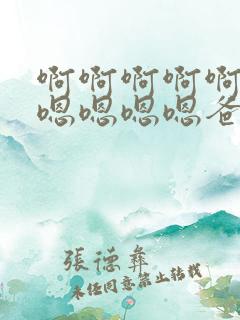 啊啊啊啊啊
嗯嗯嗯嗯爸
張德彝
未经同意禁止转载